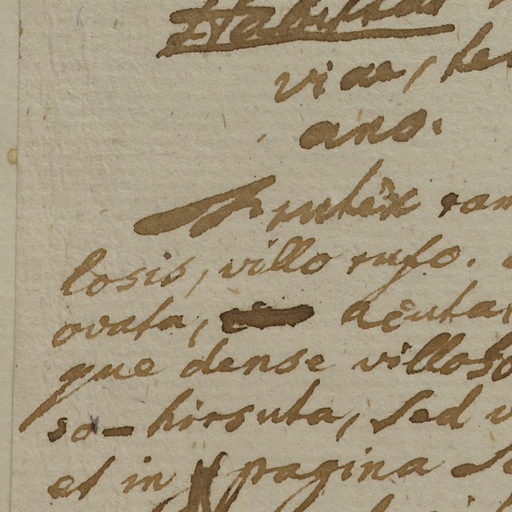 Habitat
viae, he
ano.
Frutex ram
losis, villo rufo.
ovata, acuta,
que dense villoso
so-hirsuta, sed v
et in pagina s